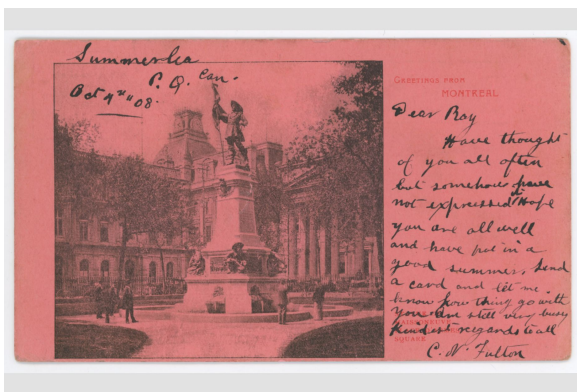 Summerlea
P. Q. Can.
Oct 4th 08.
GREETINGS FROM
MONTREAL
Dear Roy
Have thought
of you all often
but somehow have
not expressed it Hope
you are all well
and have put in a
good summer. Send
a card and let me
know how thing go with
you Am still very busy
Kindest regards to all
SQUARE
C. N. Fulton